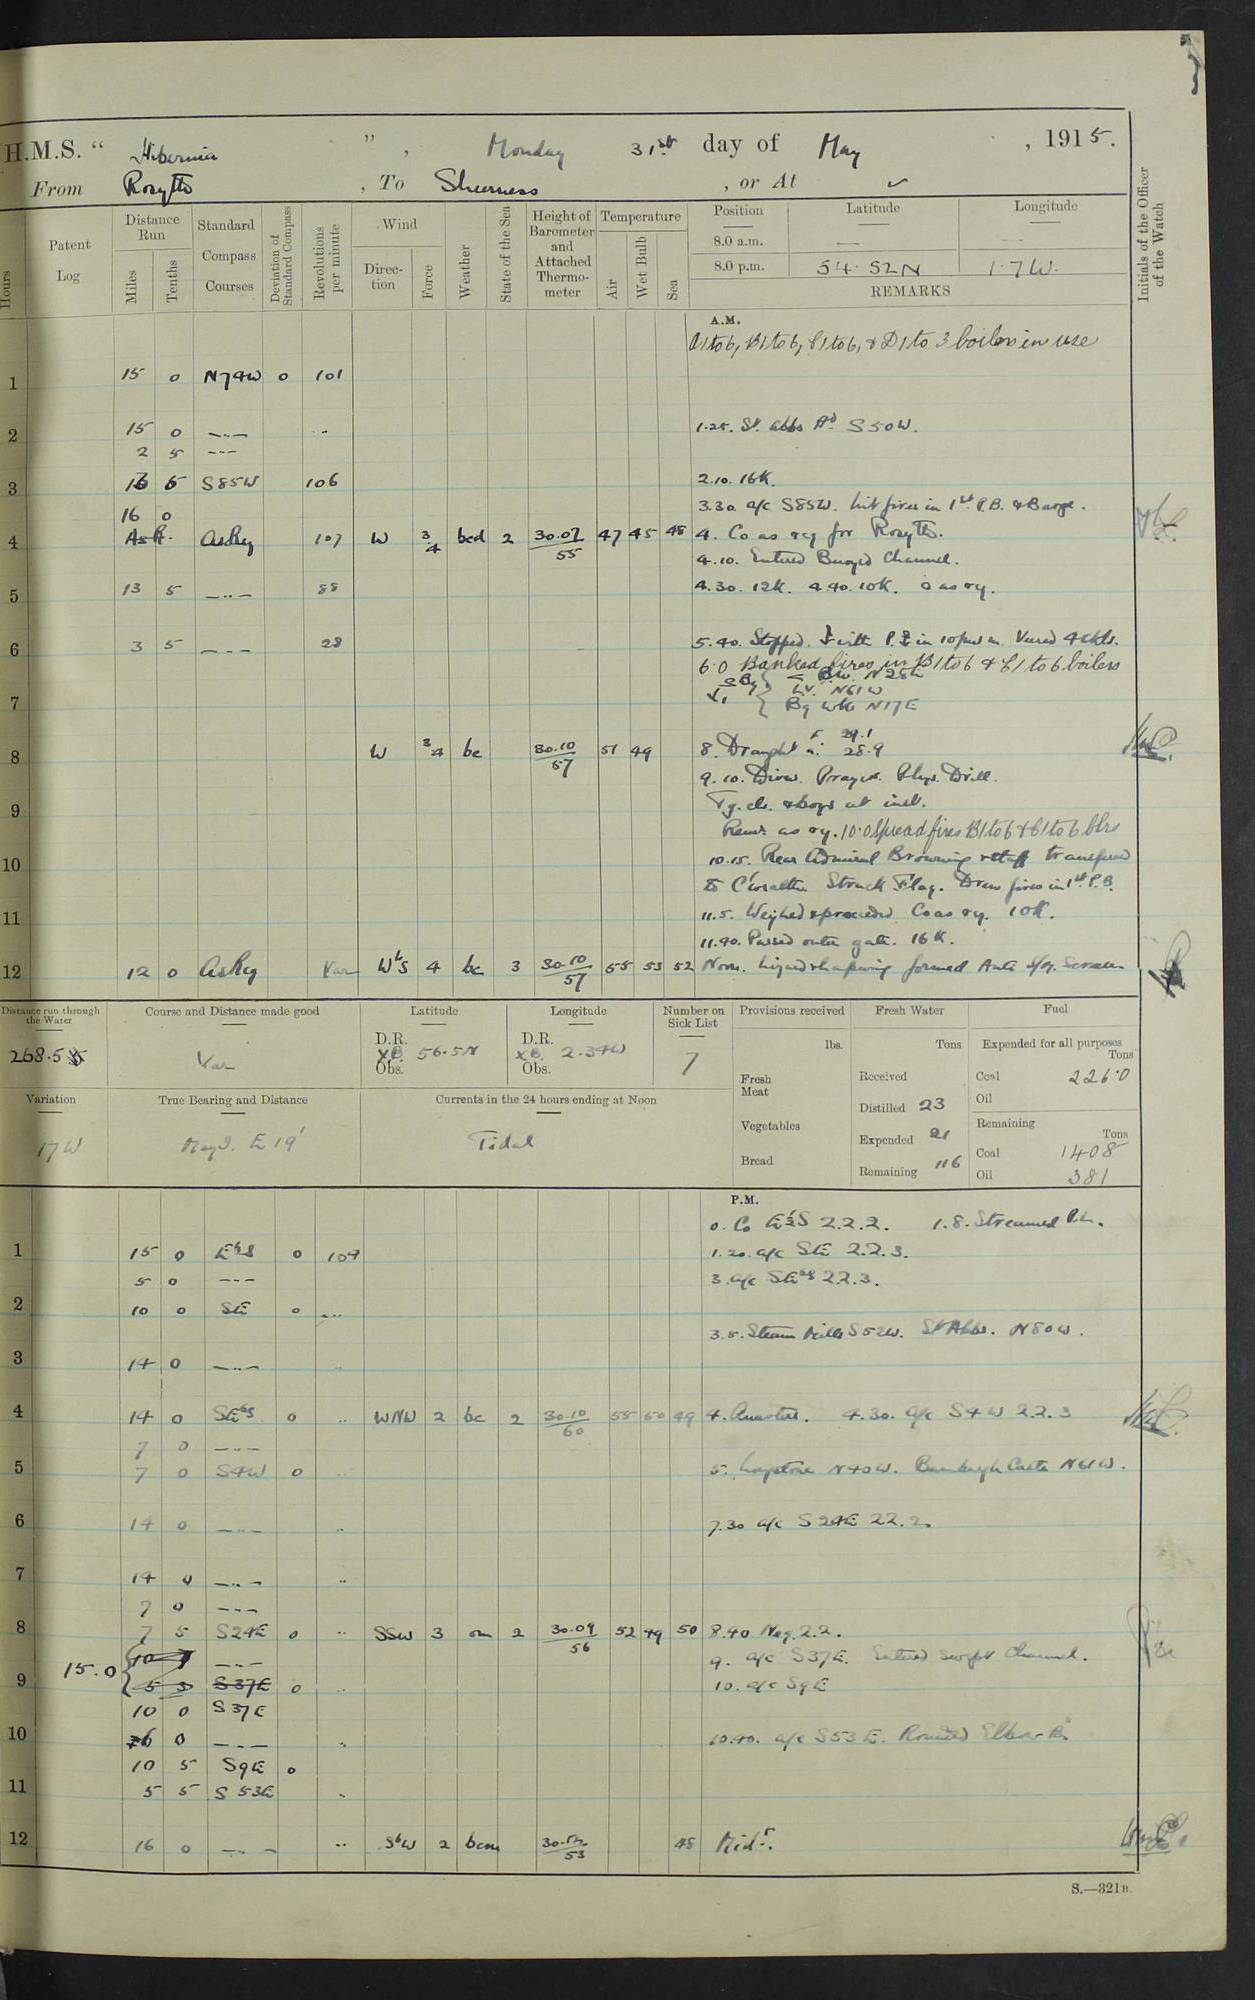 H.M.S. “ Hibernia ” , Monday 31st day of May , 1915.
From Rosyth , To Sheerness , or At ✓
Hours
Patent Log
Distance Run
Miles
Tenths
Standard Compass Courses
Deviation of Standard Compass
Revolutions per minute
Wind
Direction
Force
Weather
State of the Sea
Height of Barometer and Attached Thermometer
Temperature
Air
Wet Bulb
Sea
Position Latitude Longitude
8.0 a.m. — —
8.0 p.m. 54.52N 1.7W.
REMARKS
Initials of the Officer of the Watch
A.M.
A1to6, B1to6, C1to6, & D1to 3 boilers in use
1 15 0 N74W 0 101
2 15 0 —..— .. 1.25. St. Abbs Hd. S50W.
2 5 ---
3 13 5 S85W 106 2.10. 16K.
16 0 3.30. a/c S85W. Lit fires in 1st P.B. & Barge.
4 AsR. AsRq 107 W 3/4 bcd 2 30.07/55 47 45 48 4. Co as req for Rosyth.
4.10. Entered Buoyed Channel.
5 13 5 —..— 88 4.30. 12K. 4.40. 10K. as rq.
6 3 5 —..— 28 5.40. Stopped. with P. in 10 fms Veered 4 cbls.
6.0 Banked fires in B1to6 & C1 to 6 boilers
N61W
7 Bg N17E
8 W 3/4 bc 30.10/57 51 49 8. Draught F 29.1 A 28.9
9.10. Divns. Prayers. Phys. Drill.
9 Tg. cls. & boys at inst.
Remr. as rq. 10.0 Spread fires B1to6 & C1to6 blrs
10 10.15. Rear Admiral Browning & staff transferred
to C'wealth. Struck Flag. Drew fires in 1st P.B.
11 11.5. Weighed & proceeded Co as rq. 10K.
11.40. Passed outer gate. 16K.
12 12 0 AsRq Var WbS 4 bc 3 30.10/57 55 53 52 Noon. formed Anti S/M. Screen
Distance run through the Water
268.5
Course and Distance made good
Var
Latitude
D.R. 56.5N
Obs.
Longitude
D.R. 2.34W
Obs.
Number on Sick List
7
Provisions received
lbs.
Fresh Meat
Vegetables
Bread
Fresh Water
Tons
Received
Distilled 23
Expended 21
Remaining 116
Fuel
Expended for all purposes
Tons
Coal 226.0
Oil
Remaining
Tons
Coal 1408
Oil 381
Variation
17W
True Bearing and Distance
May I. E 19'
Currents in the 24 hours ending at Noon
Tidal
P.M.
0. Co E½S 2.2.2. 1.8. Streamed P.L.
1 15 0 EbS 0 109 1.20. a/c SE 2.2.3.
5 0 --- 3. a/c SEbS 2.2.3.
2 10 0 SE 0 —..
3.5. Steam Mills S52W. St Abbs. N80W.
3 14 0 —..— ..
4 14 0 SEbS 0 .. WNW 2 bc 2 30.10/60 55 50 49 4. Quarters. 4.30. a/c S4W 2.2.3
7 0 ---
5 7 0 S4W 0 .. 5. Longstone N40W. Bamburgh Castle N61W.
6 14 0 —..— .. 7.30 a/c S24E 22.2.
7 14 0 —..— ..
7 0 ---
8 7 5 S24E 0 .. SSW 3 om 2 30.09/56 52 49 50 8.40 Neg. 2.2.
15.0 —..— 9. a/c S37E. Entered swept Channel.
9 5 5 S37E 0 .. 10. a/c S9E
10 0 S37E
10 6 0 —..— .. 10.40. a/c S53E. Rounded Elbow By.
10 5 S9E 0
11 5 5 S53E ..
12 16 0 —..— .. SbW 2 bcm /53 48 Midt.
S.—321B.